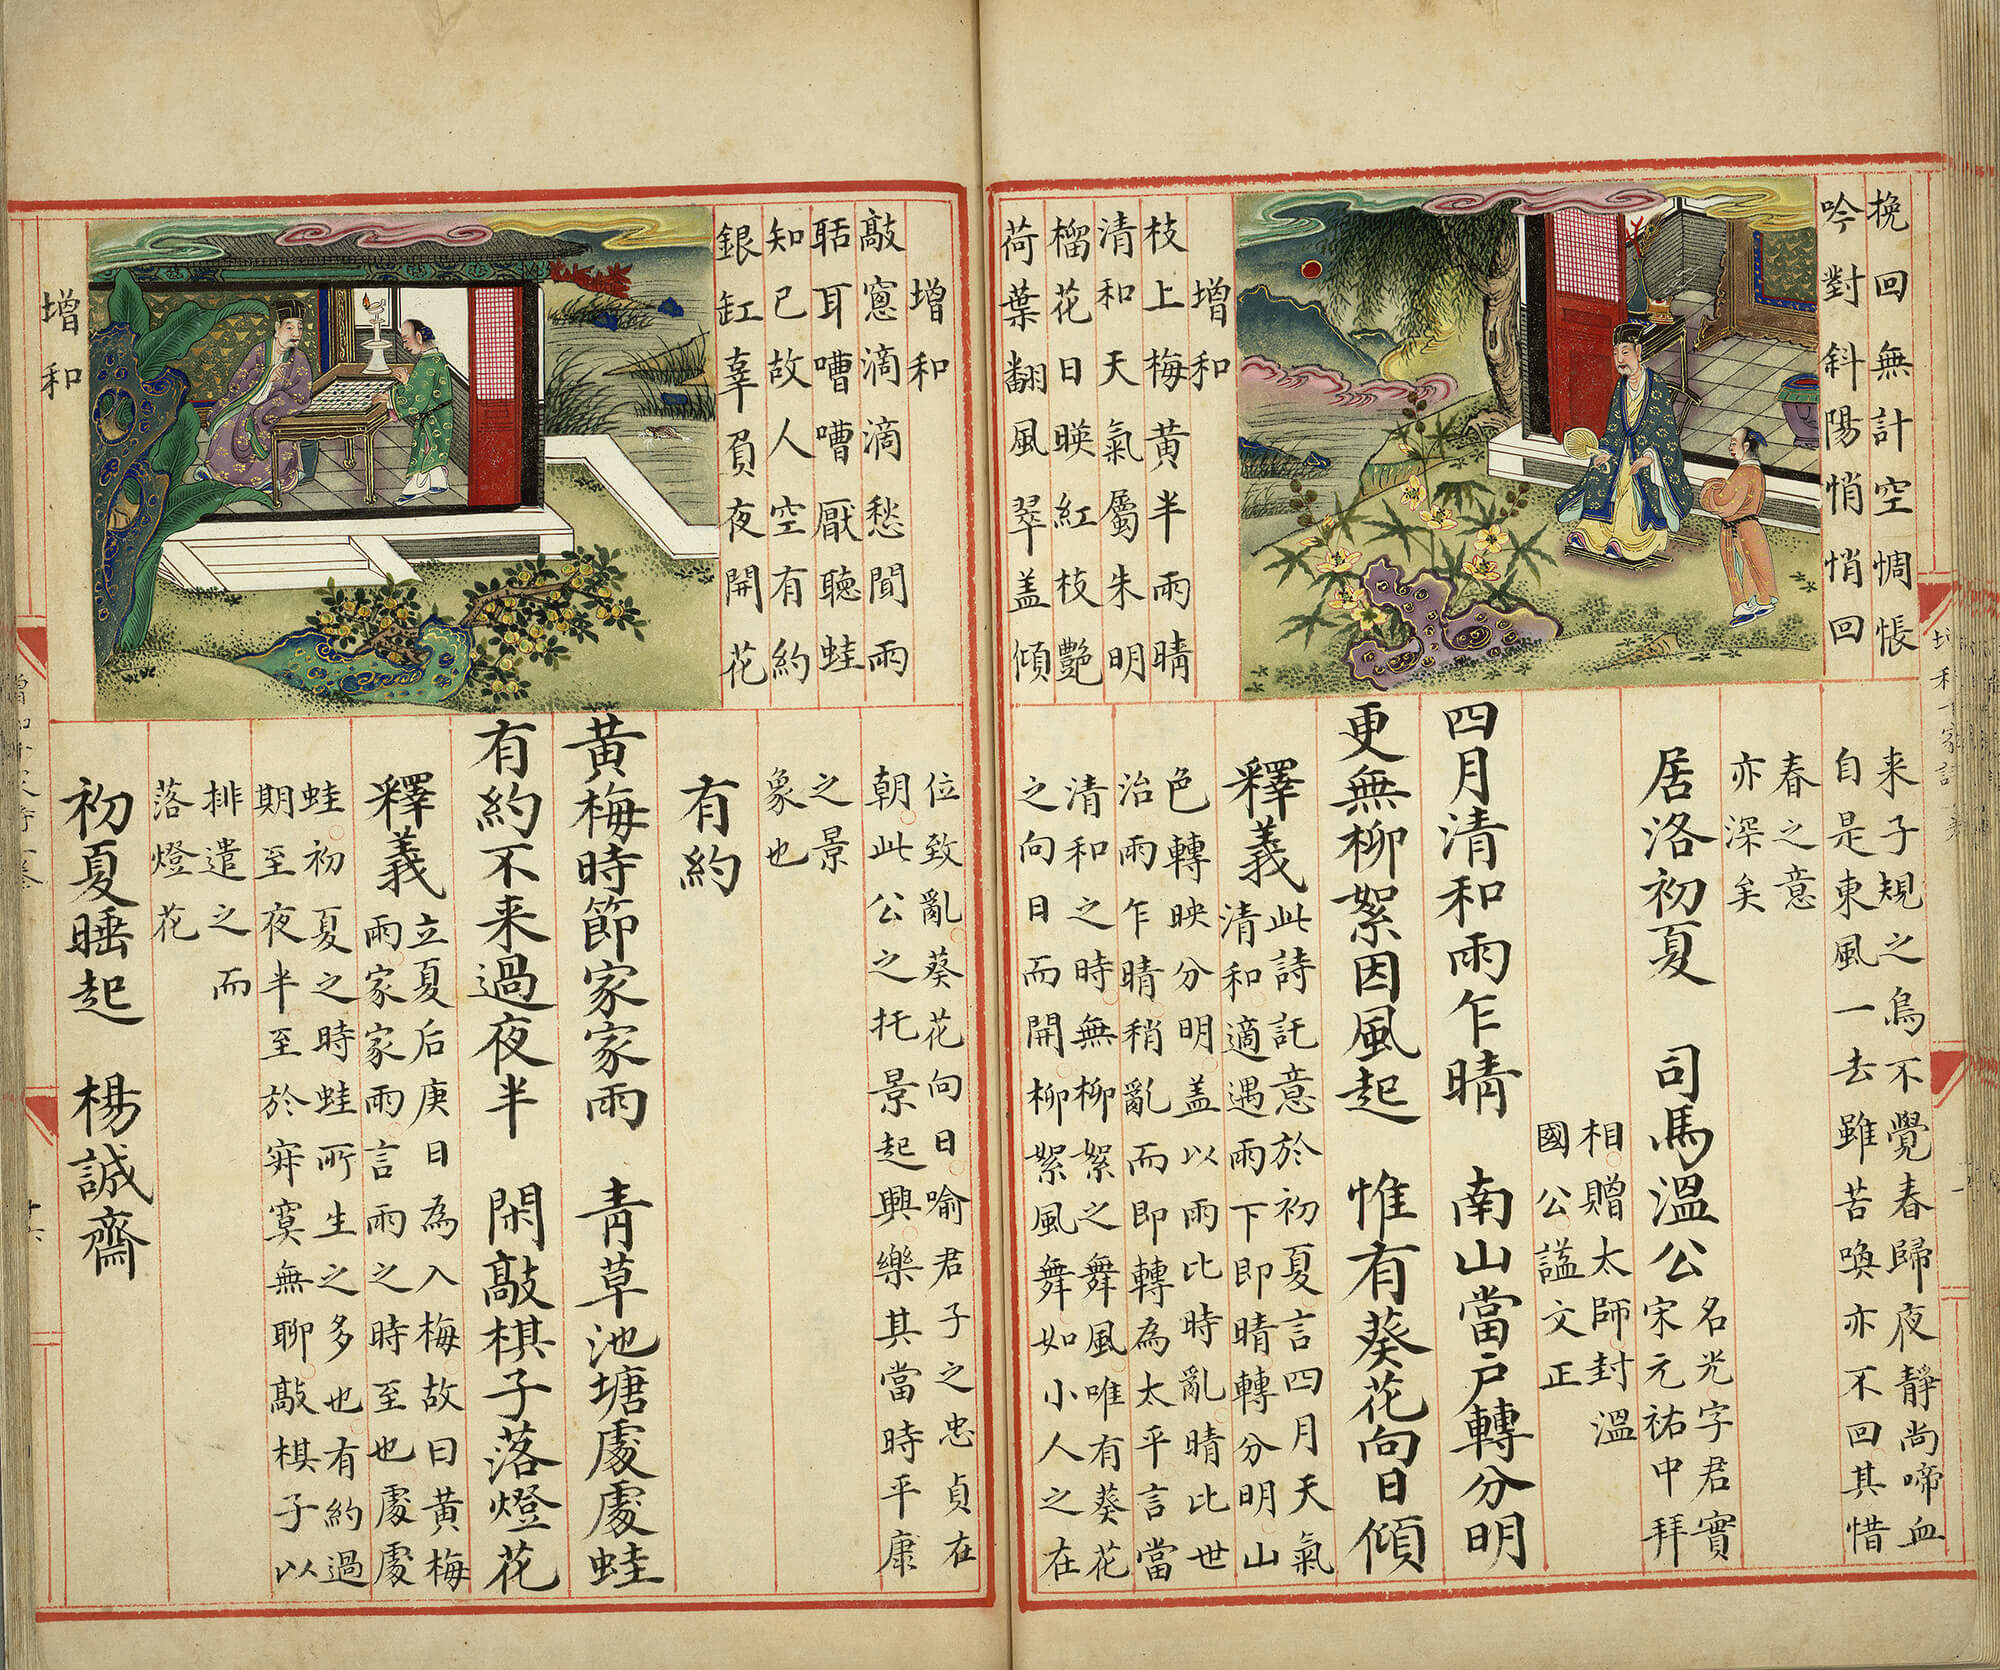 挽回無計空惆悵
吟對斜陽悄悄回
增和
枝上梅黃半雨晴
清和天氣屬朱明
榴花日暎紅枝艷
荷葉翻風翠盖傾
来子規之鳥不覺春歸夜靜尚啼血
自是東風一去雖苦喚亦不回其惜
春之意
亦深矣
居洛初夏　司馬溫公
名光字君實
宋元祐中拜
相贈太師封溫
國公謚文正
四月清和雨乍晴　南山當户轉分明
更無柳絮因風起　惟有葵花向日傾
釋義
此詩託意於初夏言四月天氣
清和適遇雨下即晴轉分明山
色轉映分明盖以雨比時亂晴比世
治雨乍晴稍亂而即轉為太平言當
清和之時無柳絮之舞風唯有葵花
之向日而開柳絮風舞如小人之在
增和
敲窻滴滴愁聞雨
聒耳嘈嘈厭聽蛙
知已故人空有約
銀缸辜負夜開花
增和
位致亂葵花向日喻君子之忠貞在
朝此公之托景起興樂其當時平康
之景
象也
有約
黃梅時節家家雨　青草池塘處處蛙
有約不来過夜半　閑敲棋子落燈花
釋義
立夏后庚日為入梅故曰黃梅
雨家家雨言雨之時至也處處
蛙初夏之時蛙所生之多也有約過
期至夜半至於寂寞無聊敲棋子以
排遣之而
落燈花
初夏睡起　楊誠齋